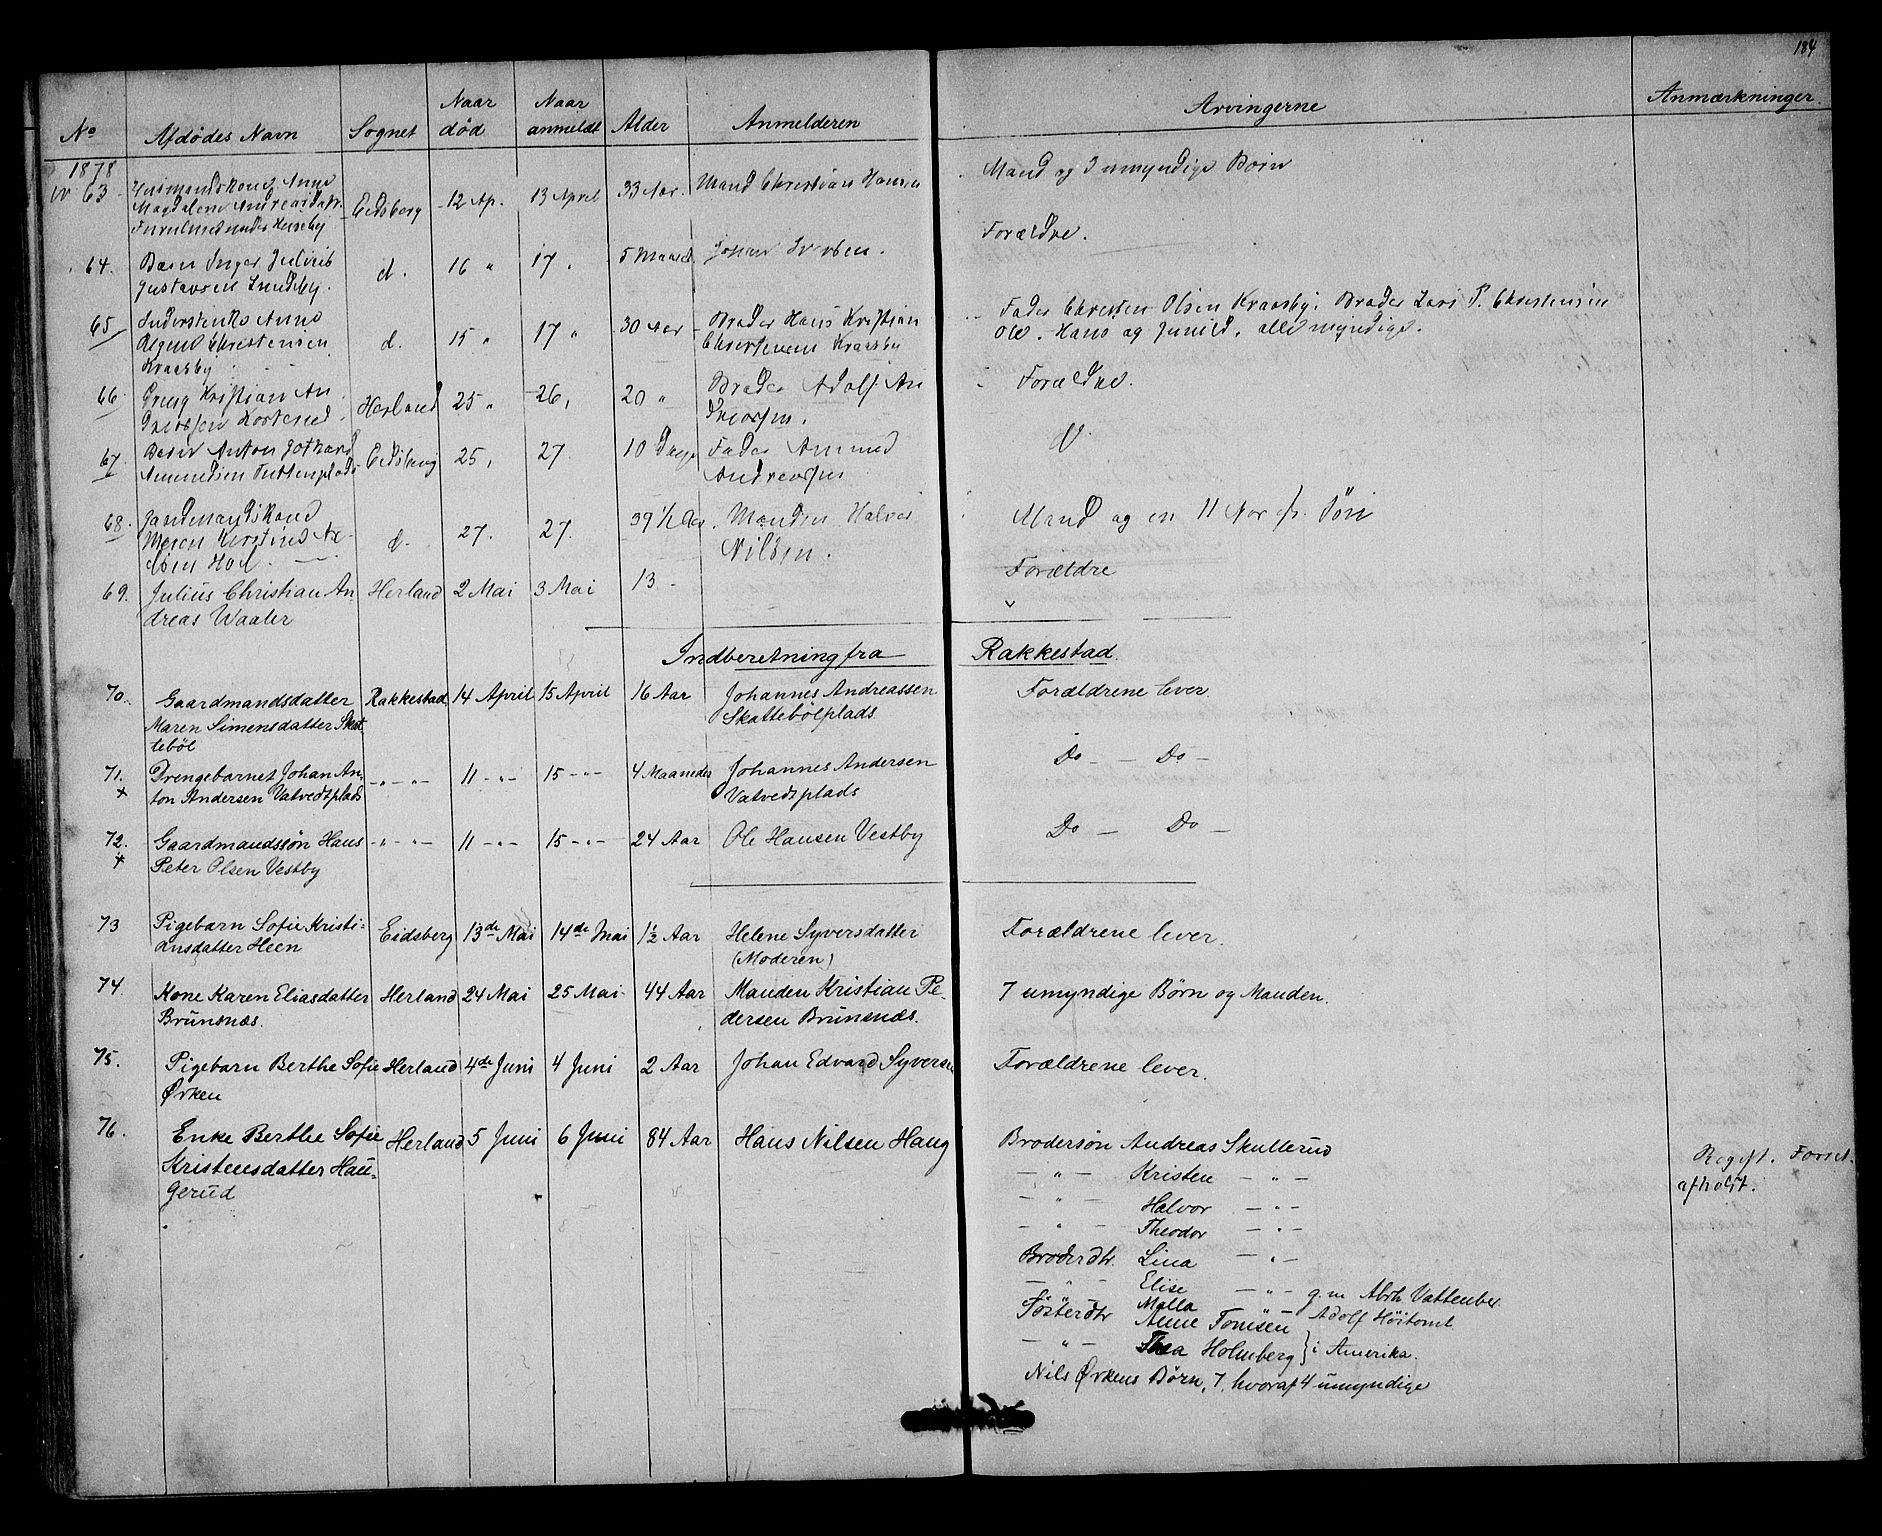 184
No Afdödes Navn Sognet Naar död Naar anmeldt Alder Anmelderen Arvingerne Anmærkninger.
1878
63 Anne Eidsberg 12 Ap. 13 April 33 Aar. Mand Christian Hansen Mand og 3 umyndige Børn
Magdalene Andreasdatr.
64. Barn Inger d. 16 " 17 " 5 Maaned Forældre.
Gustavsen
65 Anne d. 15 " 17 " 30 Aar Broder Hans Kristian Fader Christen Olsen Kraasby. Broder Lars P. Christensen
Christensen Christensen Kraasby Ole. Hans og alle myndige.
Kraasby
66 Dreng Kristian An Herland 25 " 26, 20 " Broder Adolf An Forældre.
dreassen dreassen.
67 Barn Anton Gothard Eidsberg 25, 27. 10 Dage Fader Amund
Amundsen Andreassen
68. d. 27. 27. 39 1/2 Aar. Manden Halvor Mand og en 11 Aar gl. Søn
Maren Kirstine Ax- Nilsen.
elsen Hoel
69. Julius Christian An Herland 2 Mai 3 Mai 13 - Forældre
dreas Waaler
Indberetning fra Rakkestad.
70. Gaardmandsdatter Rakkestad 14 April 15 April 16 Aar Johannes Andreassen Forældrene lever
Maren Simensdatter Skat Skattebölplads
teböl
71. Drengebarnet Johan An- -"- -"- 11 -"- 15 -"- 4 Maaneder Johannes Andersen Do - - Do -
x ton Andersen Vatvedtplads Vatvedtplads
72. Gaardmandssön Hans -"- -"- 11 -"- 15 -"- 24 Aar Ole Hansen Vestby Do - Do -
x Peter Olsen Vestby
73 Pigebarn Sofie Kristi- Eidsberg 13de Mai 14de Mai 1½ Aar Helene Syversdatter Forældrene lever.
ansdatter Heen (Moderen)
74. Kone Karen Eliasdatter Herland 24 Mai 25 Mai 44 Aar Manden Kristian Pe- 7 umyndige Børn og Manden.
Brunsnæs. dersen Brunsnæs.
75. Pigebarn Berthe Sofie Herland 4de Juni 4 Juni 2 Aar Johan Edvard Syversen Forældrene lever.
Ørken
76. Enke Berthe Sofie Herland 5 Juni 6 Juni 84 Aar Hans Nilsen Haug Brodersøn Andreas Skullerud
Kristensdatter Hau- - " - Kristen - " - Regist. Forret.
gerud - " - Halvor - " - afholdt.
- " - Theodor - " -
Broderdtr. Lina - " -
- " - Elise - " - g. m Abrh Vattenber
Söster dtr Malla " Adolf Höitomt
Anne Tomsen
- " - Thea Holmberg } i Amerika.
Nils Ørkens Børn, 7, hvoraf 4 umyndige